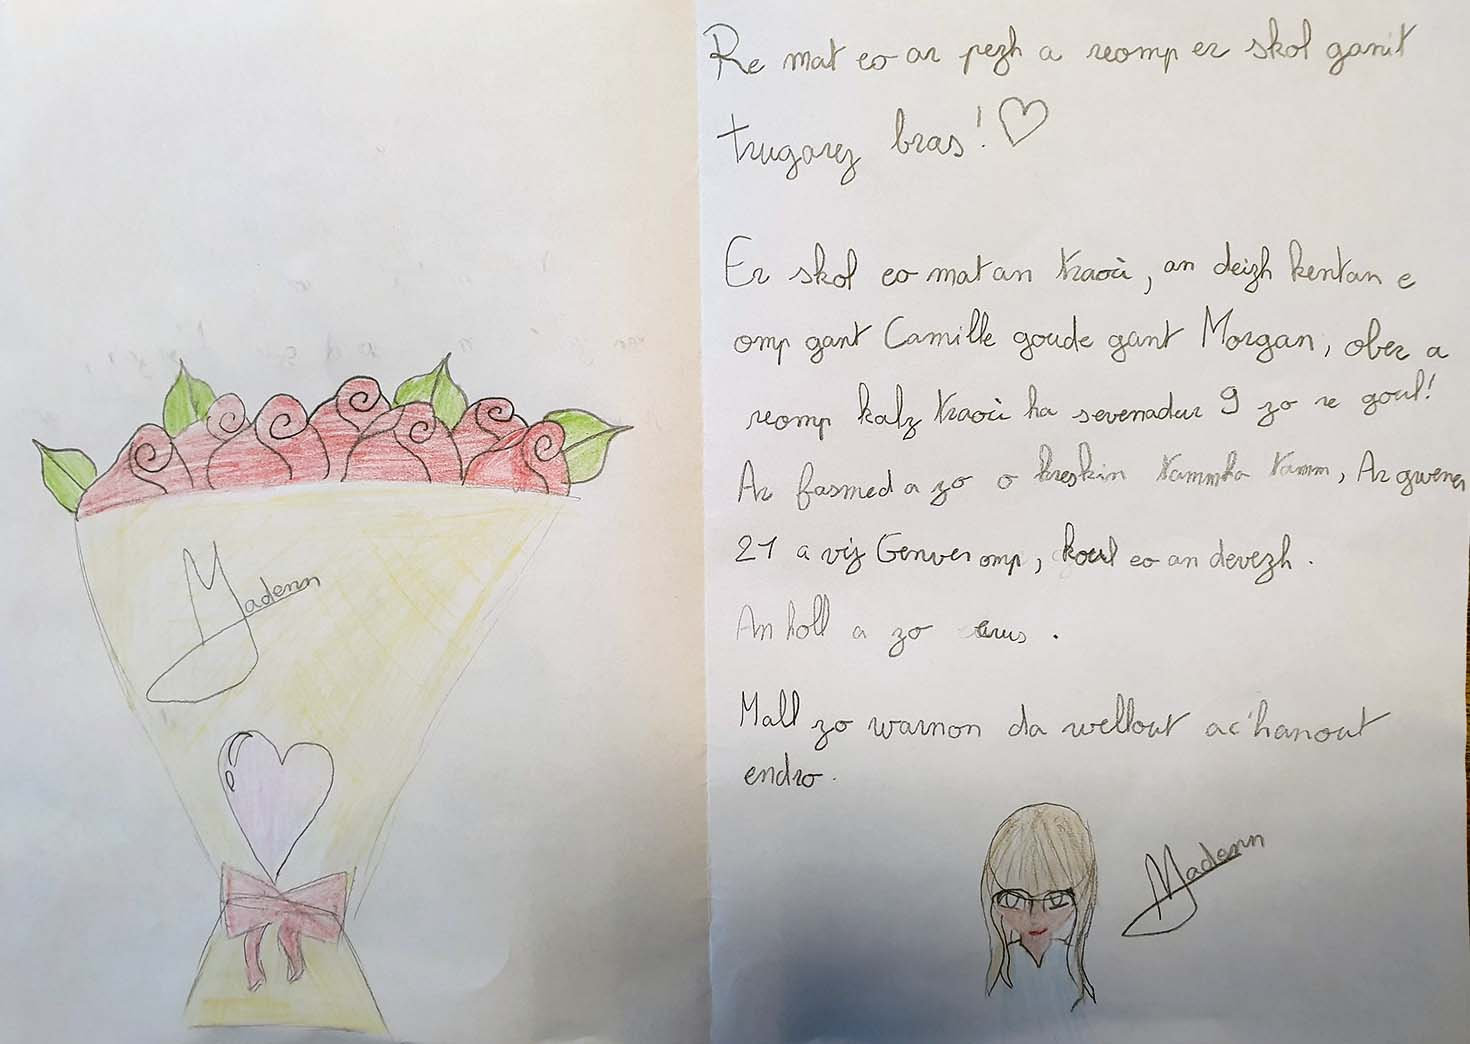 Madenn
Re mat eo ar pezh a reomp er skol ganit
trugarez bras!
Er skol eo mat an traoù, an deizh kentan e
omp gant Camille goude gant Morgan, ober a
reomp kalz traoù ha sevenadur 9 zo re goul!
Ar fasmed a zo o kreskin tammha tamm, Ar gwener
21 a viz Genver omp, koul eo an devezh.
An holl a zo erus.
Mall zo warnon da wellout ac'hanout
endro.
Madenn